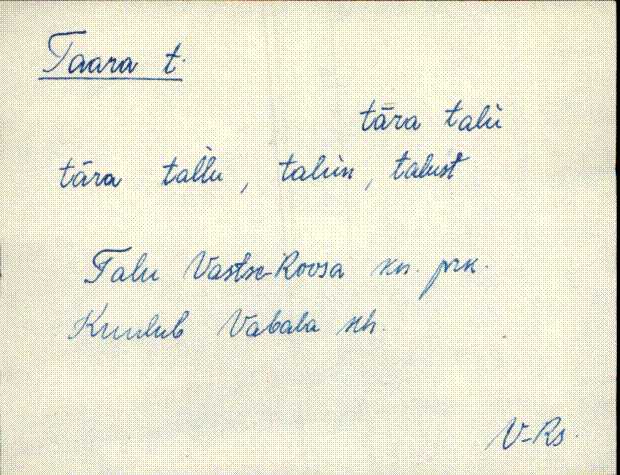 Taara t.
tāra talu
tāra tal̀lu, taluн, talust
Talu Vastse-Roosa kn. prk.
Kuulub Vabala kh.
V-Rs.